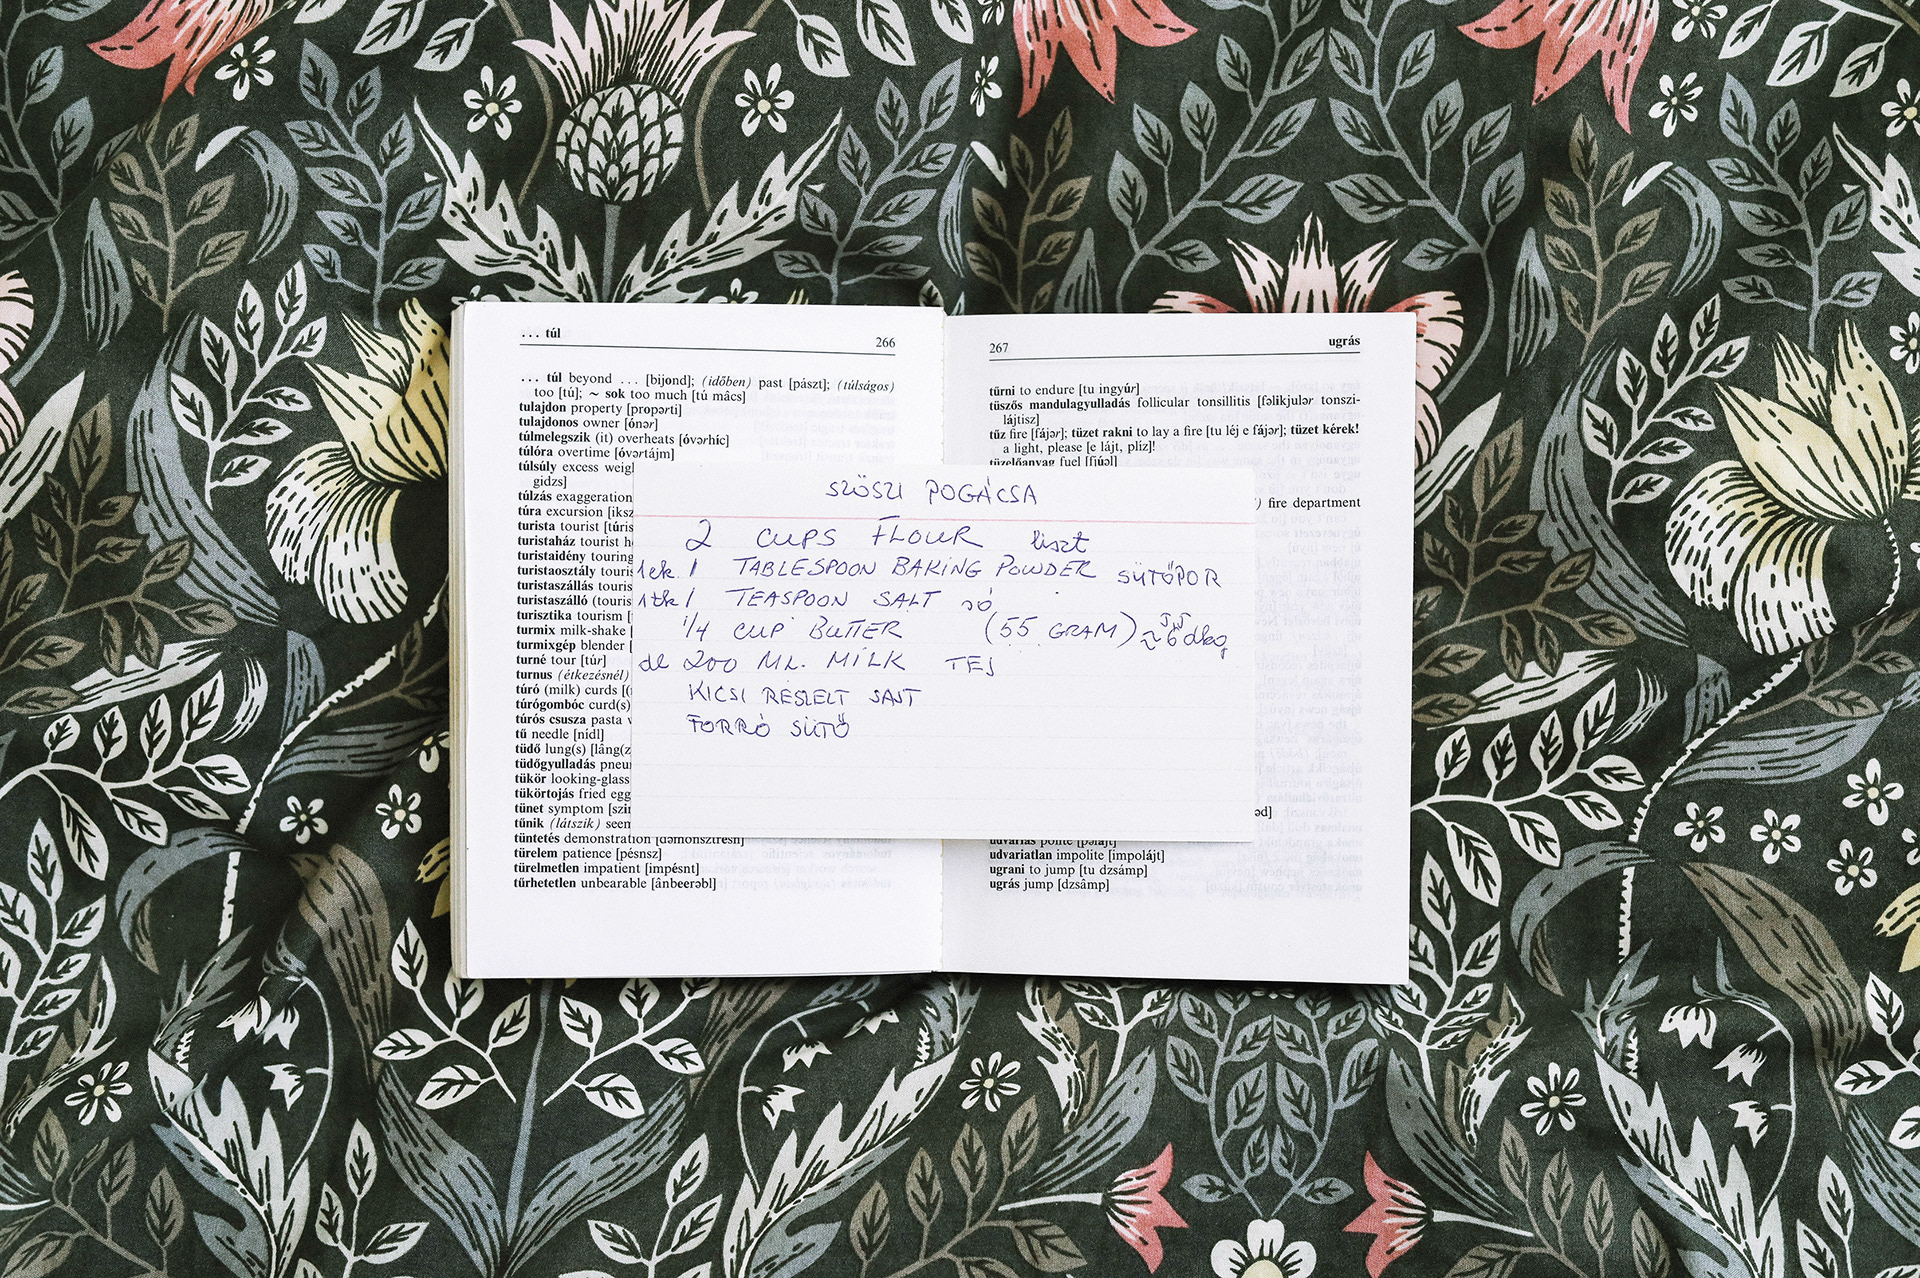 ... túl 266
... túl beyond ... [bijond]; (időben) past [pászt]; (túlságos)
too [tú]; ~ sok too much [tú mâcs]
tulajdon property [propərti]
tulajdonos owner [ónər]
túlmelegszik (it) overheats [óvərhíc]
túlóra overtime [óvərtájm]
túlsúly excess weigl
gidzs]
túlzás exaggeration
túra excursion [iksz
turista tourist [túris
turistaház tourist h
turistaidény touring
turistaosztály touris
turistaszállás touris
turistaszálló (touris
turisztika tourism [
turmix milk-shake [
turmixgép blender [
turné tour [túr]
turnus (étkezésnél)
túró (milk) curds [(
túrógombóc curd(s)
túrós csusza pasta v
tű needle [nídl]
tüdő lung(s) [lâng(z
tüdőgyulladás pneu
tükör looking-glass
tükörtojás fried egg
tünet symptom [szir
tűnik (látszik) seem
tüntetés demonstration [dəmonsztrésn]
türelem patience [pésnsz]
türelmetlen impatient [impésnt]
tűrhetetlen unbearable [ânbeerəbl]
267 ugrás
tűrni to endure [tu ingyúr]
tüszős mandulagyulladás follicular tonsillitis [fəlikjulər tonszi-
lájtisz]
tűz fire [fájər]; tüzet rakni to lay a fire [tu léj e fájər]; tüzet kérek!
a light, please [e lájt, plíz]!
tüzelőanyag fuel [fjúəl]
) fire department
əd]
udvarias polite [pəlájt]
udvariatlan impolite [impolájt]
ugrani to jump [tu dzsámp]
ugrás jump [dzsâmp]
SZÖSZI POGÁCSA
2 CUPS FLOUR liszt
1ek. 1 TABLESPOON BAKING POWDER SÜTŐPOR
1tk 1 TEASPOON SALT só
1/4 CUP BUTTER (55 GRAM) ~ 6 dkg
de 200 ML. MILK TEJ
KICSI RESZELT SAJT
FORRÓ SÜTŐ